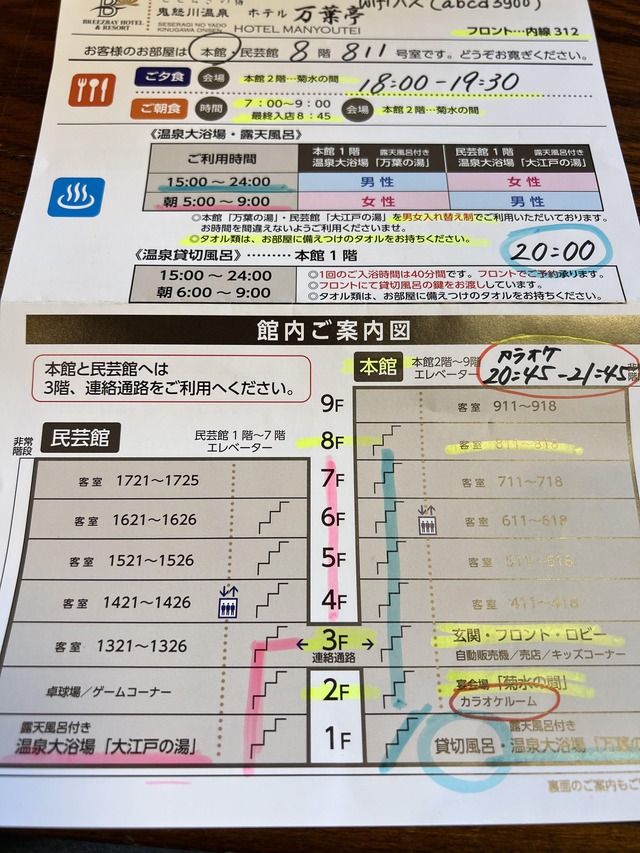 BREEZBAY HOTEL
& RESORT
鬼怒川温泉 ホテル 万葉亭
SESERAGI NO YADO
KINUGAWA ONSEN
HOTEL MANYOUTEI
Wifiパス(abcd3900)
フロント…内線312
お客様のお部屋は 本館・民芸館 8 階 811 号室です。どうぞお寛ぎください。
ご夕食 会場 本館2階…菊水の間 18:00-19:30
ご朝食 時間 7:00〜9:00 会場 本館2階…菊水の間
最終入店8:45
《温泉大浴場・露天風呂》
ご利用時間
本館1階 露天風呂付き
温泉大浴場「万葉の湯」
民芸館1階 露天風呂付き
温泉大浴場「大江戸の湯」
15:00〜24:00 男性 女性
朝5:00〜9:00 女性 男性
◎本館「万葉の湯」・民芸館「大江戸の湯」を男女入れ替え制でご利用いただいております。
お時間を間違えないようご利用くださいませ。
◎タオル類は、お部屋に備えつけのタオルをお持ちください。
20:00
《温泉貸切風呂》………本館1階
15:00〜24:00
朝6:00〜9:00
◎1回のご入浴時間は40分間です。フロントでご予約承ります。
◎フロントにて貸切風呂の鍵をお渡ししています。
◎タオル類は、お部屋に備えつけのタオルをお持ちください。
館内ご案内図
本館と民芸館へは
3階、連絡通路をご利用へください。
本館 本館2階〜9階
エレベーター
カラオケ
20:45-21:45
非常
階段
民芸館
民芸館1階〜7階
エレベーター
9F 客室 911〜918
8F 客室 811〜818
客室 1721〜1725 7F 客室 711〜718
客室 1621〜1626 6F 客室 611〜618
客室 1521〜1526 5F 客室 511〜518
客室 1421〜1426 4F 客室 411〜418
客室 1321〜1326 3F 玄関・フロント・ロビー
連絡通路 自動販売機/売店/キッズコーナー
卓球場/ゲームコーナー 2F 宴会場「菊水の間」
カラオケルーム
露天風呂付き
温泉大浴場「大江戸の湯」
1F
露天風呂付き
貸切風呂・温泉大浴場「万葉の湯
裏面のご案内もご